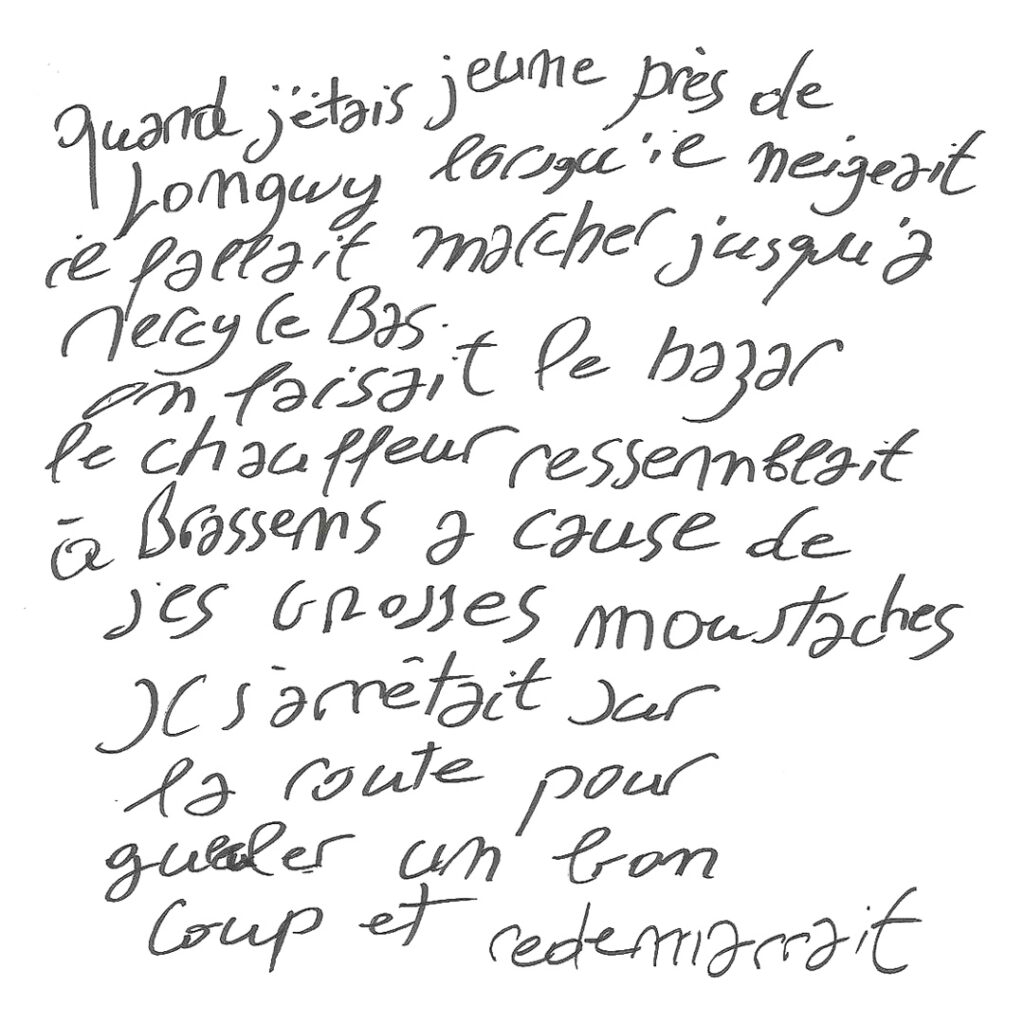 quand j'étais jeune près de
Longwy lorsqu'il neigeait
il fallait marcher jusqu'à
Mercy le Bas.
on faisait le bazar
le chauffeur ressemblait
à Brassens a cause de
ses Grosses moustaches
Il s'arrêtait sur
la route pour
gueuler un bon
coup et redemarrait